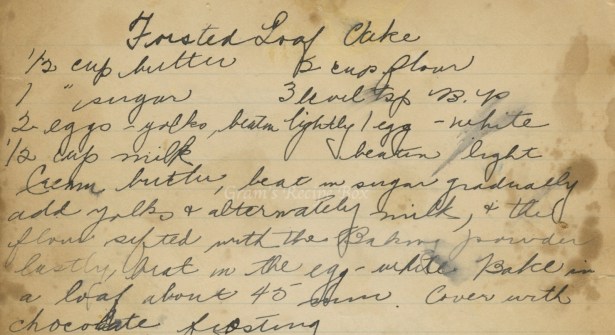 Frosted Loaf Cake
1/2 cup butter
1/2 cup flour
1 " sugar
3 level tsp B.P
2 eggs - yolks, beaten lightly 1 egg - white
1/2 cup milk
beaten light
Cream butter, beat in sugar gradually
add yolks & alternately milk, & the
flour sifted with the Baking powder
lastly, beat in the egg-white Bake in
a loaf about 45 min. Cover with
chocolate frosting
Gram's Recipe Box